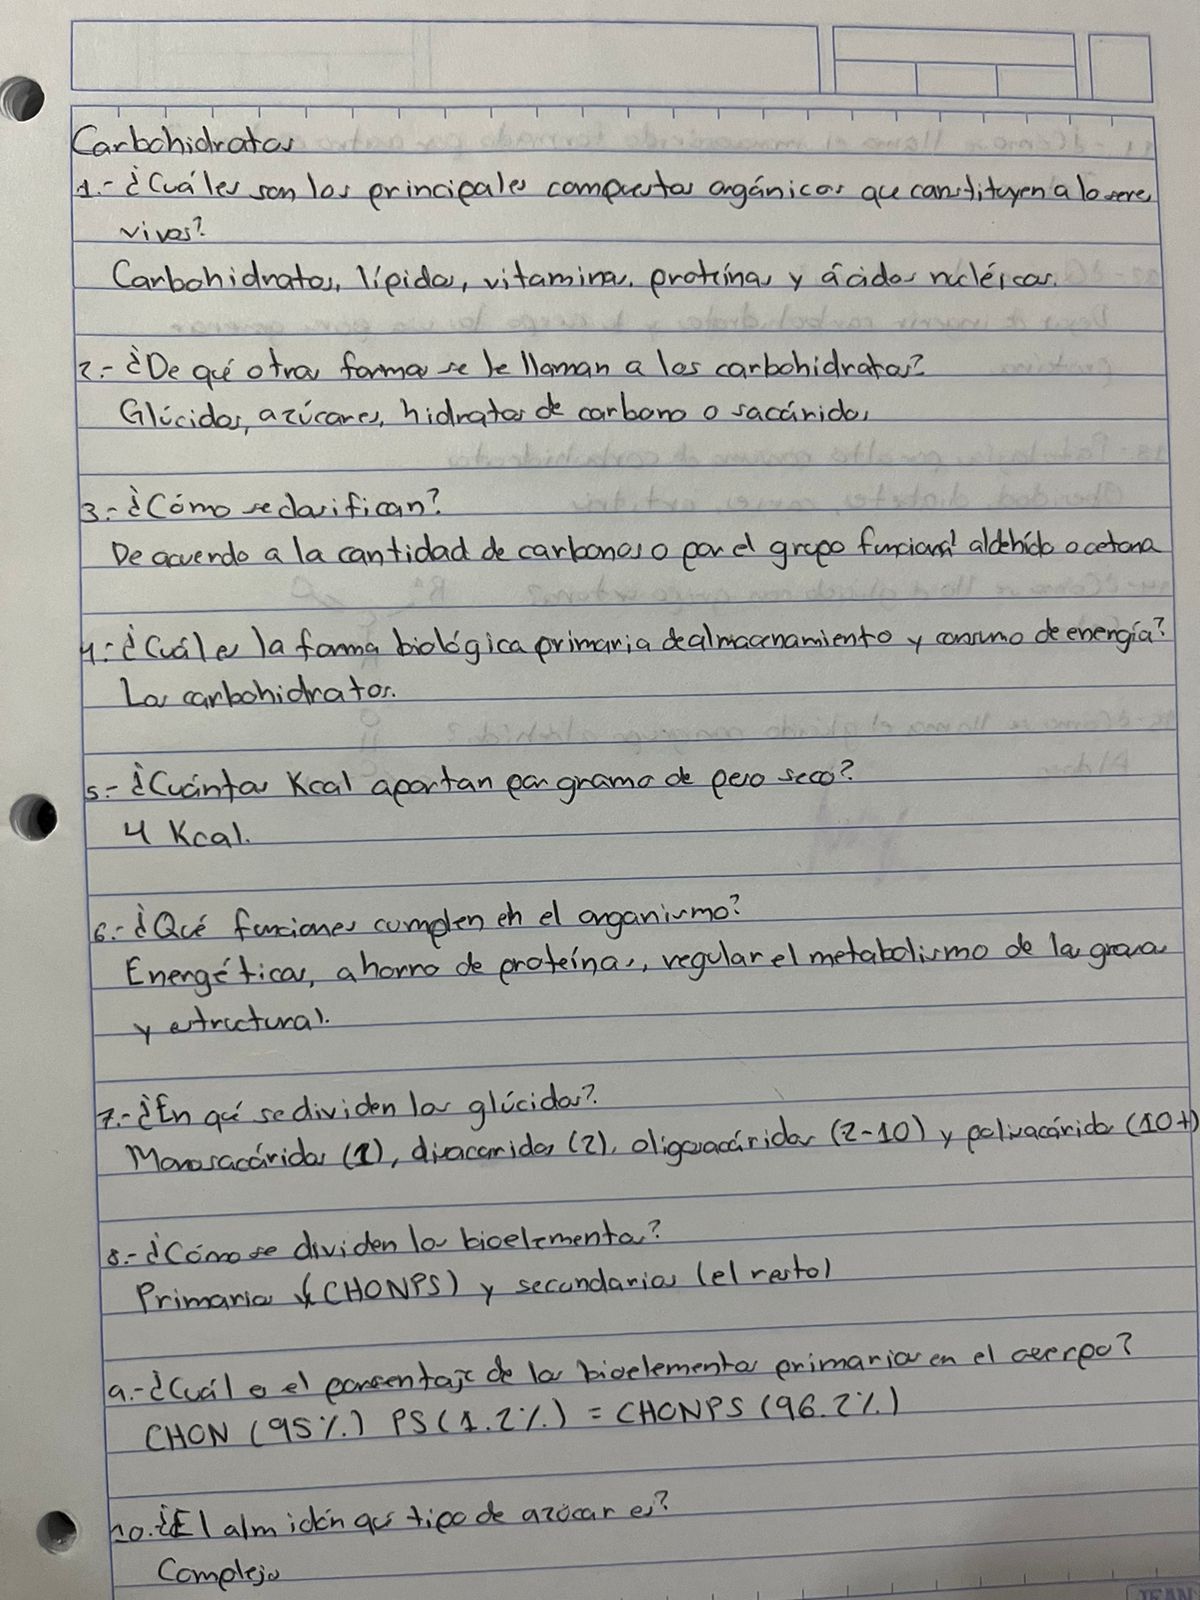 Carbohidratos
1.- ¿Cuáles son los principales compuestos orgánicos que constituyen a lo seres
vivos?
Carbohidratos, lípidos, vitaminas, proteínas y ácidos nucléicos.
2.- ¿De qué otras formas se le llaman a los carbohidratos?
Glúcidos, azúcares, hidratos de carbono o sacáridos
3.- ¿Cómo se clasifican?
De acuerdo a la cantidad de carbonos o por el grupo funcional aldehído o cetona
4.- ¿Cuál es la forma biológica primaria de almacenamiento y consumo de energía?
Los carbohidratos.
5.- ¿Cuántas Kcal aportan por gramo de peso seco?
4 Kcal.
6.- ¿Qué funciones cumplen en el organismo?
Energéticas, ahorro de proteínas, regular el metabolismo de las grasas
y estructural.
7.- ¿En qué se dividen los glúcidos?
Monosacáridos (1), disacaridos (2), oligosacáridos (2-10) y polisacáridos (10+)
8.- ¿Cómo se dividen los bioelementos?
Primarios (CHONPS) y secundarios (el resto)
9.- ¿Cuál es el porcentaje de los bioelementos primarios en el cuerpo?
CHON (95%) PS (1.2%) = CHONPS (96.2%)
10. ¿El almidón qué tipo de azúcar es?
Complejo
JEAN